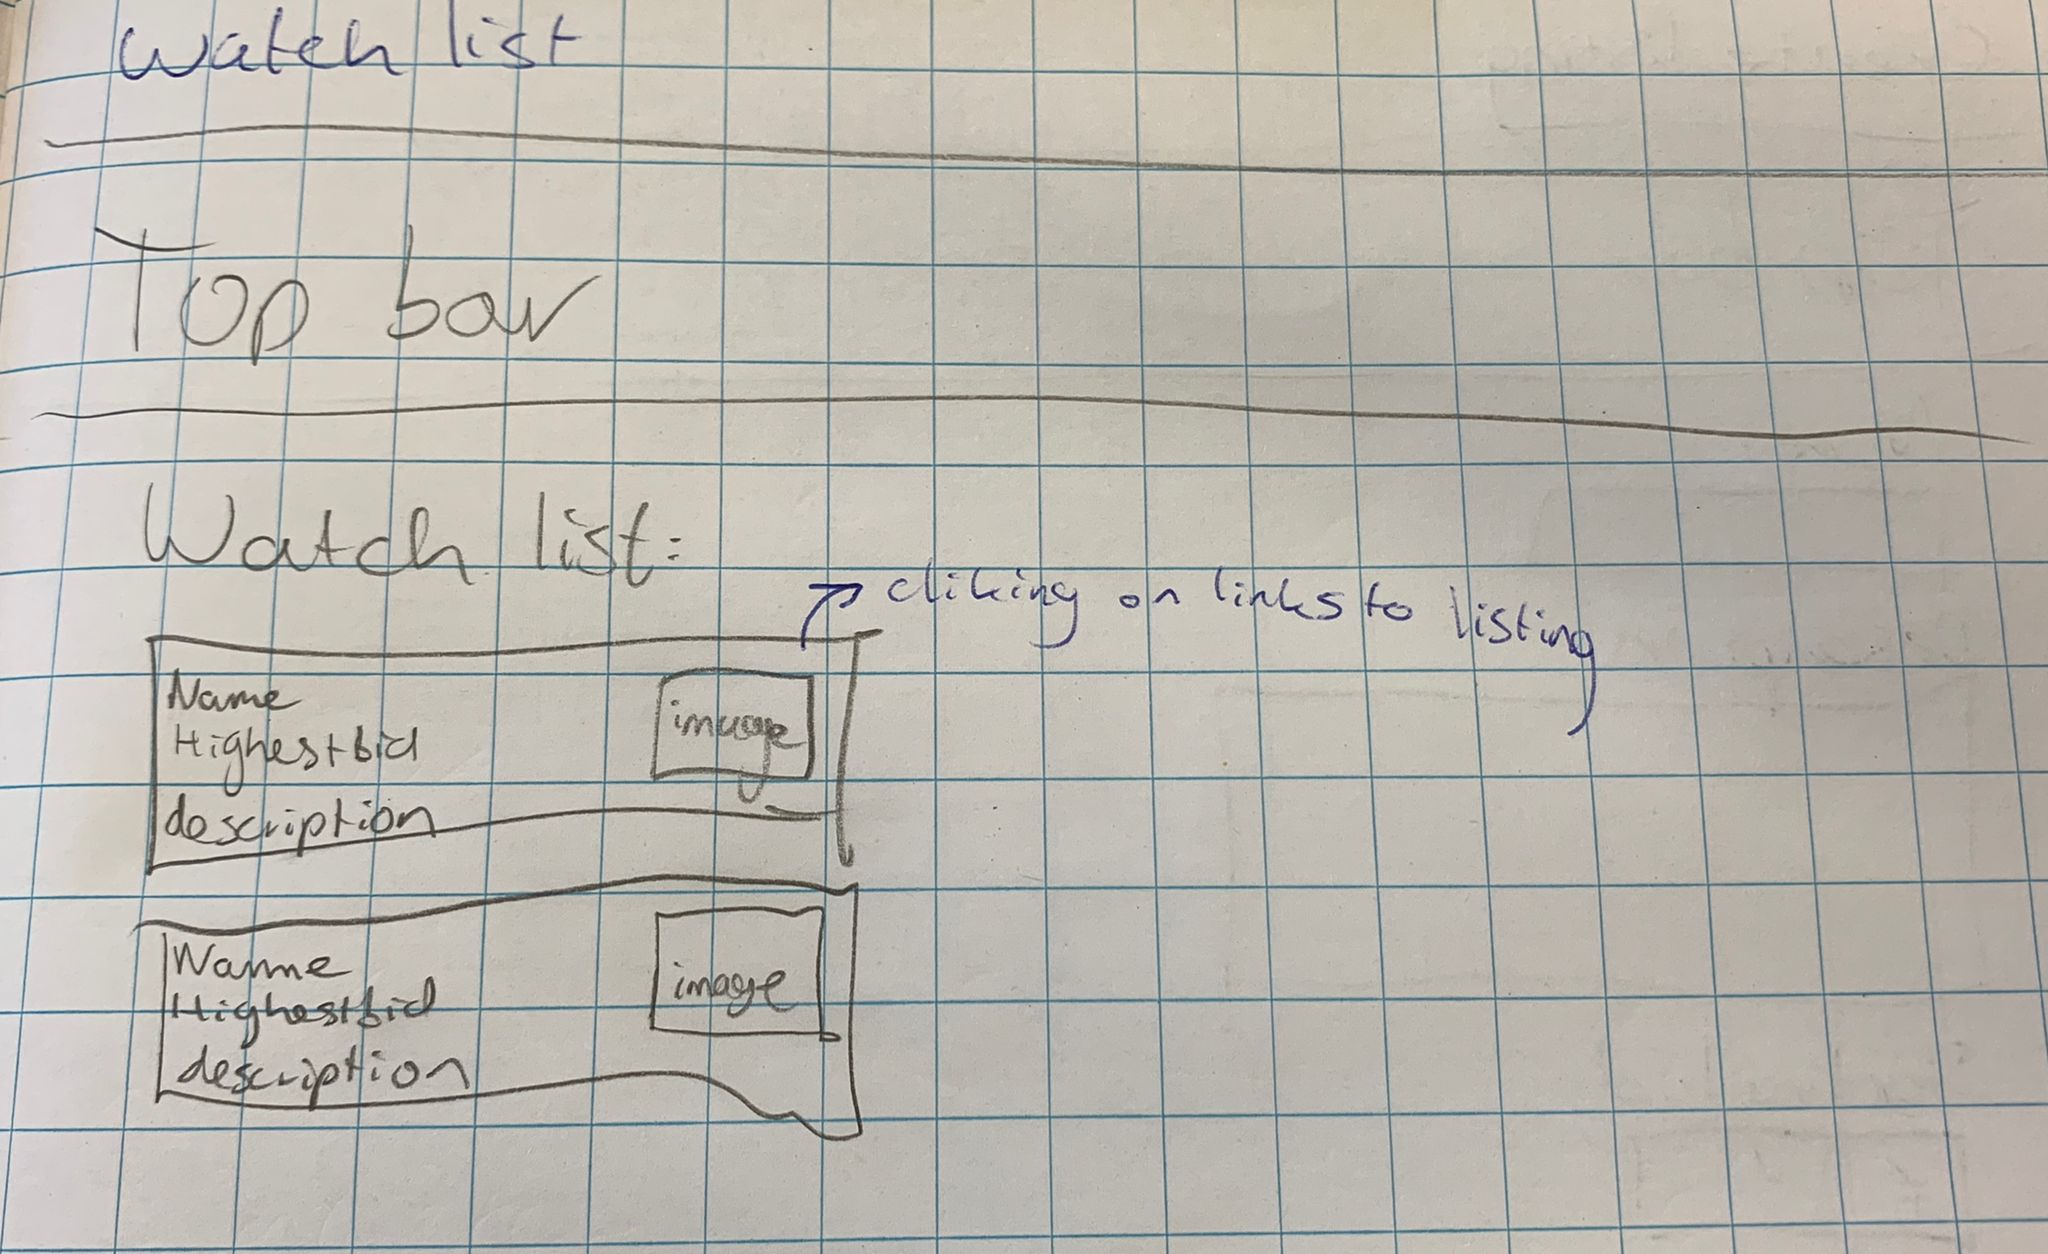 Watch list
Top bar
Watch list:
cliking on links to listing
Name
Highest bid
description
image
Name
Highest bid
description
image